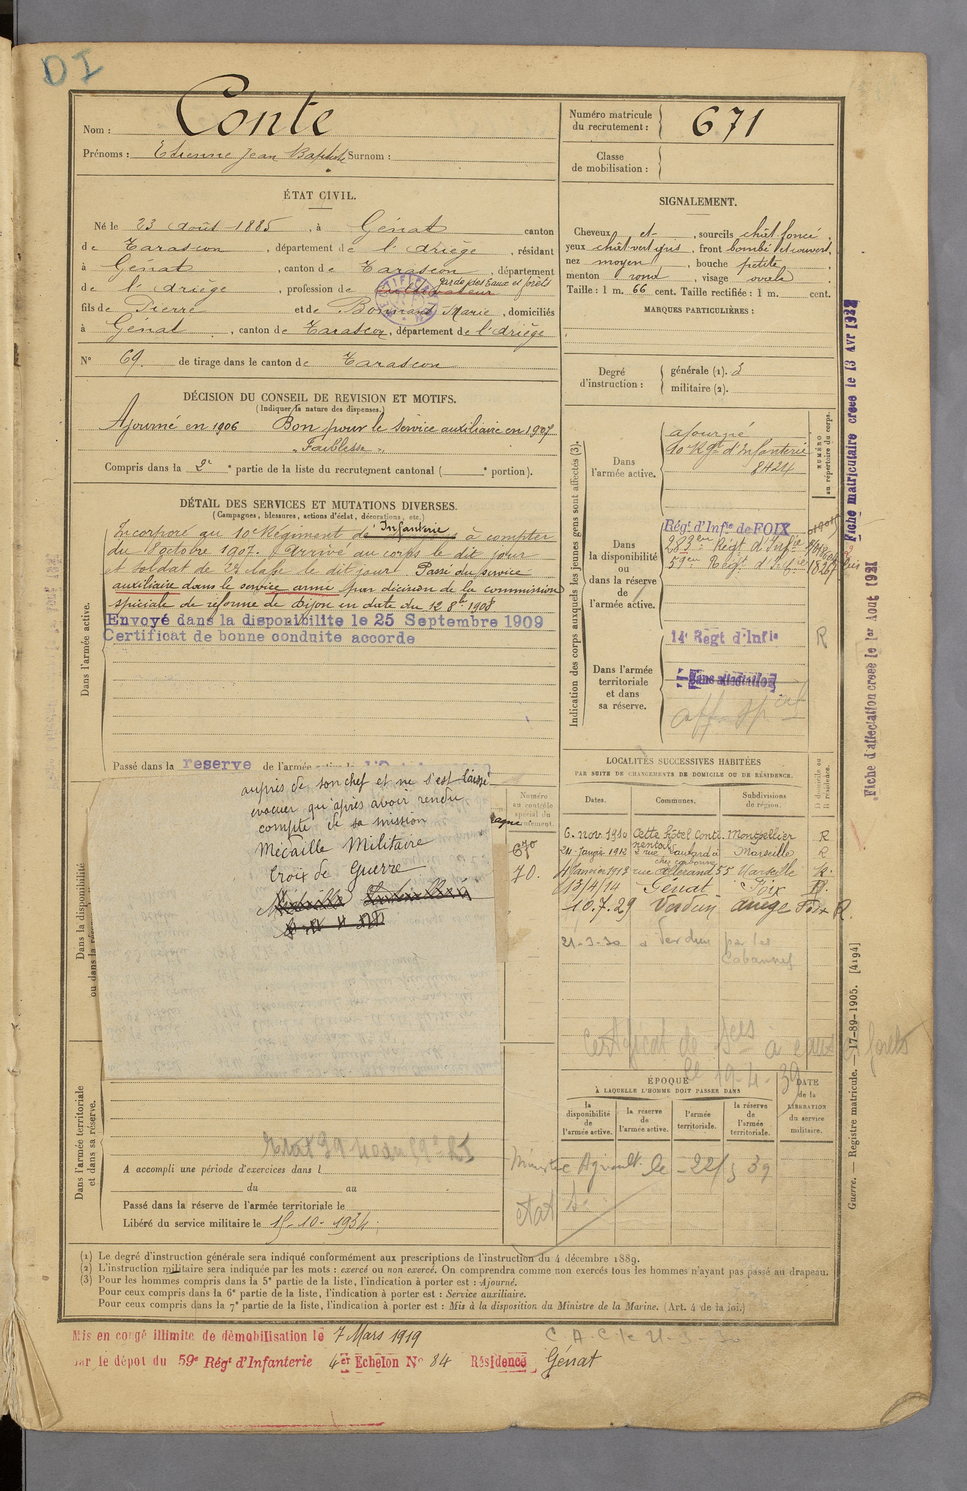 DI
Nom : Conte
Prénoms : Etienne Jean Baptiste Surnom :
Numéro matricule
du recrutement : 671
Classe
de mobilisation :
ÉTAT CIVIL.
Né le 23 août 1885, à Génat canton
de Tarascon, département de l'Ariège, résidant
à Génat, canton de Tarascon, département
de l'Ariège, profession de garde des Eaux et forêts
fils de Pierre et de Marie, domiciliés
à Génat, canton de Tarascon, département de l'Ariège
N° 69. de tirage dans le canton de Tarascon
DÉCISION DU CONSEIL DE REVISION ET MOTIFS.
(Indiquer la nature des dispenses.)
Ajourné en 1906 Bon pour le service auxiliaire en 1907
"Faiblesse"
Compris dans la 2e partie de la liste du recrutement cantonal ( e portion).
DÉTAIL DES SERVICES ET MUTATIONS DIVERSES.
(Campagnes, blessures, actions d'éclat, décorations, etc.)
Incorporé au 10e Régiment d'Infanterie à compter
du 8 octobre 1907. Arrivé au corps le dit jour
et soldat de 2e classe le dit jour. Passé du service
auxiliaire dans le service armé par décision de la commission
spéciale de réforme de Dijon en date du 12 8bre 1908
Envoyé dans la disponibilite le 25 Septembre 1909
Certificat de bonne conduite accorde
Dans l'armée active.
Passé dans la reserve de l'armée active
auprès de son chef et ne s'est laissé
évacuer qu'après avoir rendu
compte de sa mission
Médaille Militaire
Croix de Guerre
Dans la disponibilité
ou dans la rés
Numéro
au contrôle
spécial du
670
70.
Dans l'armée territoriale
et dans sa réserve.
A accompli une période d'exercices dans l
du au
Passé dans la réserve de l'armée territoriale le
Libéré du service militaire le 15-10-1934
SIGNALEMENT.
Cheveux et, sourcils chât. foncé,
yeux chât vert gris, front bombé découvert,
nez moyen, bouche petite,
menton rond, visage ovale.
Taille : 1 m. 66 cent. Taille rectifiée : 1 m. cent.
MARQUES PARTICULIÈRES :
Degré
d'instruction :
générale (1). 3
militaire (2).
Indication des corps auxquels les jeunes gens sont affectés (3).
NUMÉRO
au répertoire du corps.
Dans
l'armée active.
ajourné
10e Rgt d'Infanterie
8424
Dans
la disponibilité
ou
dans la réserve
de
l'armée active.
Régt d'Infie de FOIX
283e Régt d'Infie
59e Régt d'Infie
Dans l'armée
territoriale
et dans
sa réserve.
14e Regt d'Infie R
Sans affectation
aff. sp
LOCALITÉS SUCCESSIVES HABITÉES
PAR SUITE DE CHANGEMENTS DE DOMICILE OU DE RÉSIDENCE.
Dates. Communes. Subdivisions
de région.
D domicile ou
R résidence.
6. nov. 1910 Cette hôtel Conte Montpellier R
24 Janvier 1912 Marseille R
Janvier 1913 rue 55 Marseille R.
13/4/14 Génat Foix D.
10.7.29 Verdun Ariège Foix R.
21-3-30 à Verdun par les
Cabannes
Certificat de
le 19-4-39
ÉPOQUE
À LAQUELLE L'HOMME DOIT PASSER DANS
DATE
de la
LIBÉRATION
du service
militaire.
la
disponibilité
de
l'armée active.
la réserve
de
l'armée active.
l'armée
territoriale.
la réserve
de
l'armée
territoriale.
Ministre Agricult. le 22/5 39
Fiche matriculaire creee le 13 Avr 1922
Fiche d'affectation creee le 1er Aout 1921
Guerre. — Registre matricule. — 17-89-1905. [4194]
(1) Le degré d'instruction générale sera indiqué conformément aux prescriptions de l'instruction du 4 décembre 1889.
(2) L'instruction militaire sera indiquée par les mots : exercé ou non exercé. On comprendra comme non exercés tous les hommes n'ayant pas passé au drapeau.
(3) Pour les hommes compris dans la 5e partie de la liste, l'indication à porter est : Ajourné.
Pour ceux compris dans la 6e partie de la liste, l'indication à porter est : Service auxiliaire.
Pour ceux compris dans la 7e partie de la liste, l'indication à porter est : Mis à la disposition du Ministre de la Marine. (Art. 4 de la loi.)
Mis en congé illimite de démobilisation le 7 Mars 1919
par le dépot du 59e Régt d'Infanterie 4er Echelon N° 84 Résidence Génat